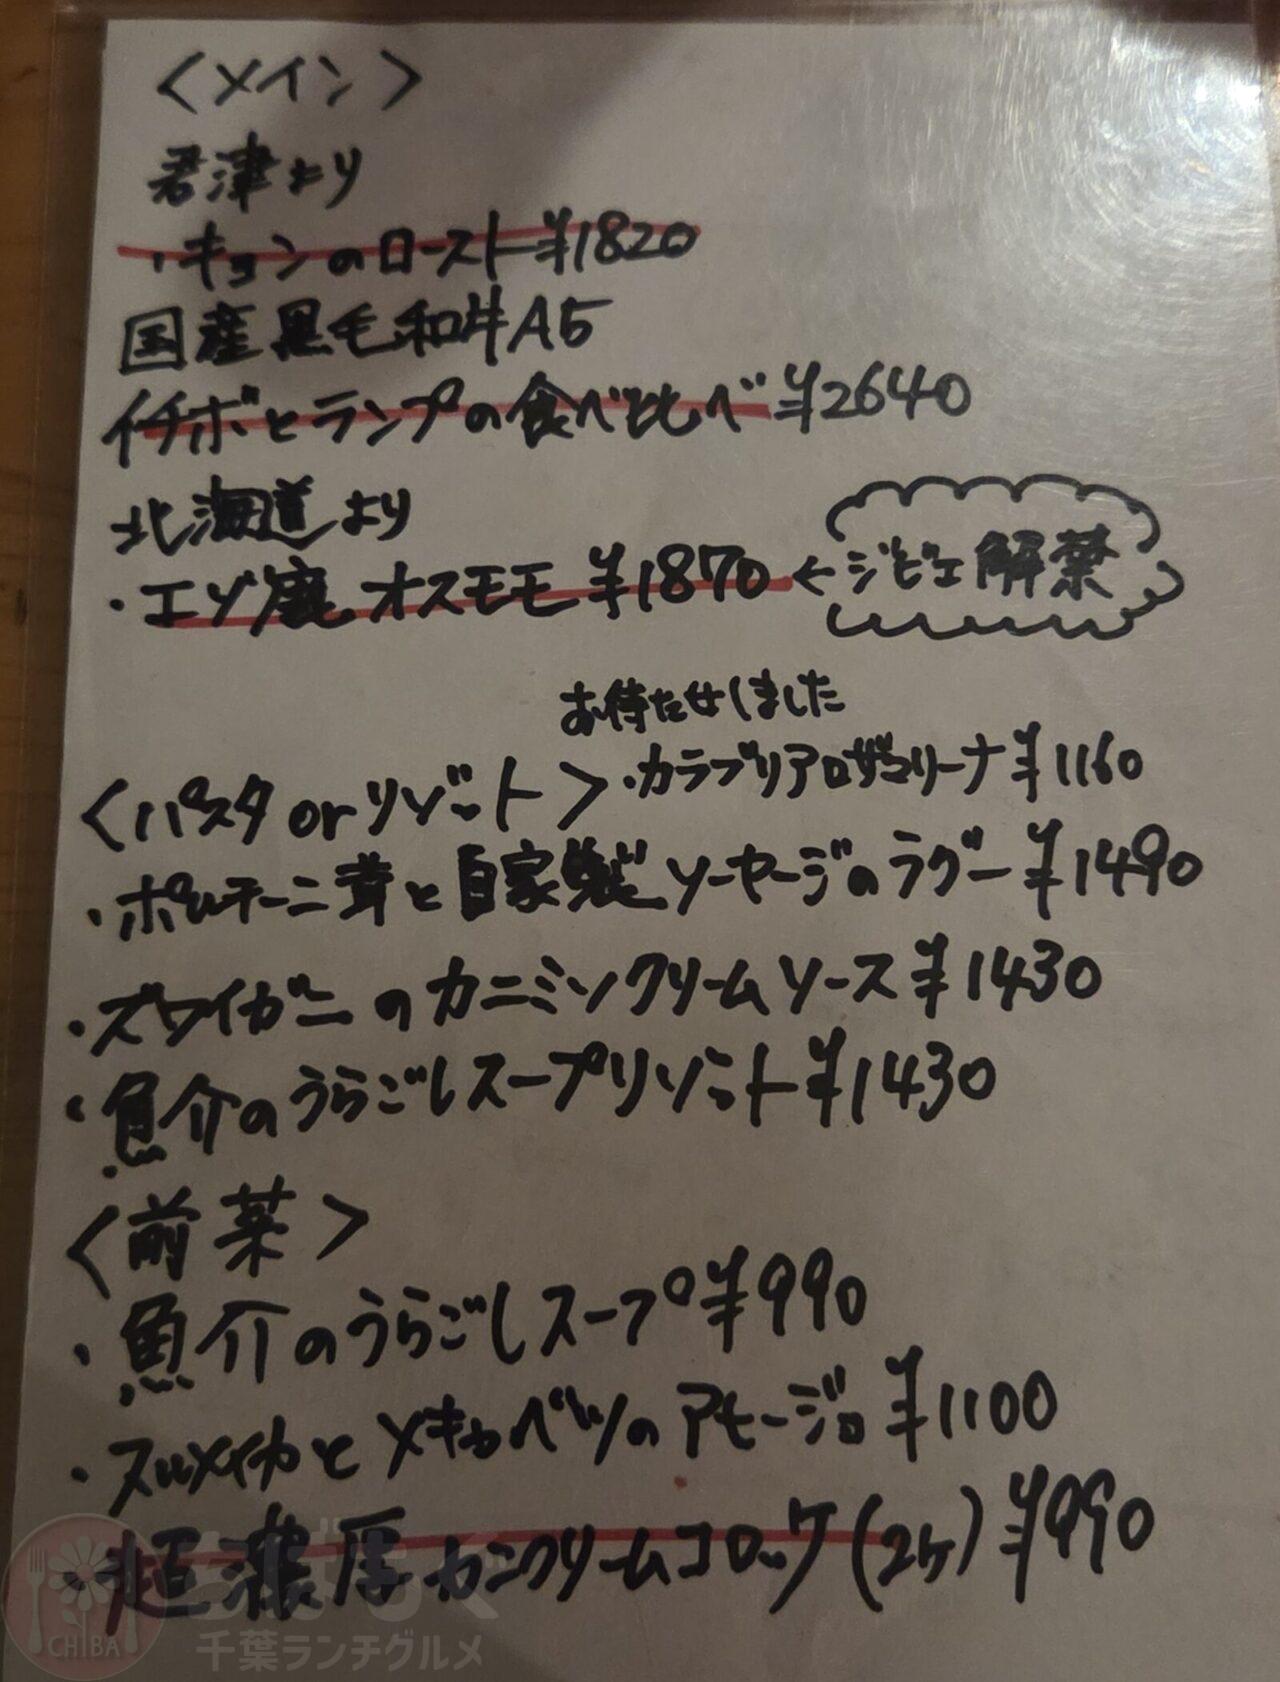 <メイン>
君津より
・キョンのロースト¥1820
国産黒毛和牛A5
イチボとランプの食べ比べ¥2640
北海道より
・エゾ鹿 オスモモ ¥1870 ←ジビエ解禁
お待たせしました
<パスタorリゾット>・カラブリアロザマリーナ¥1160
・ポルチーニ茸と自家製ソーセージのラグー¥1490
・ズワイガニのカニミソクリームソース¥1430
・魚介のうらごしスープリゾット¥1430
<前菜>
・魚介のうらごしスープ¥990
・スルメイカとメキャベツのアヒージョ¥1100
超濃厚カニクリームコロッケ(2ヶ)¥990
ちばもぐ
CHIBA
千葉ランチグルメ